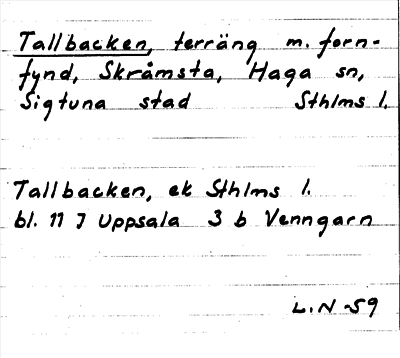 Tallbacken, terräng m. forn-
fynd, Skråmsta, Haga sn,
Sigtuna stad Sthlms l.
Tallbacken, ek Sthlms l.
bl. 11 I Uppsala 3 b Venngarn
L.N -59